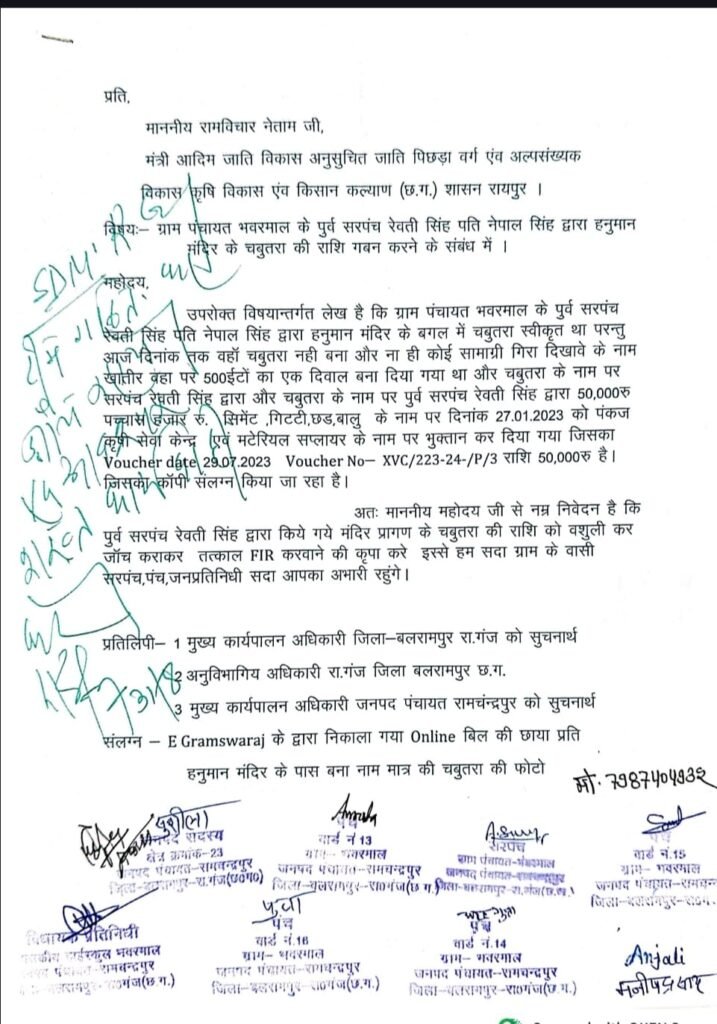 प्रति,
माननीय रामविचार नेताम जी,
मंत्री आदिम जाति विकास अनुसुचित जाति पिछड़ा वर्ग एंव अल्पसंख्यक
विकास कृषि विकास एंव किसान कल्याण (छ.ग.) शासन रायपुर ।
विषयः– ग्राम पंचायत भवरमाल के पुर्व सरपंच रेवती सिंह पति नेपाल सिंह द्वारा हनुमान
मंदिर के चबुतरा की राशि गबन करने के संबंध में ।
महोदय,
उपरोक्त विषयान्तर्गत लेख है कि ग्राम पंचायत भवरमाल के पुर्व सरपंच
रेवती सिंह पति नेपाल सिंह द्वारा हनुमान मंदिर के बगल में चबुतरा स्वीकृत था परन्तु
आज दिनांक तक वहॉ चबुतरा नही बना और ना ही कोई सामाग्री गिरा दिखावे के नाम
खातीर वहा पर 500ईटों का एक दिवाल बना दिया गया था और चबुतरा के नाम पर
सरपंच रेवती सिंह द्वारा और चबुतरा के नाम पर पुर्व सरपंच रेवती सिंह द्वारा 50,000रु
पच्चास हजार रु. सिमेंट ,गिटटी,छड,बालु के नाम पर दिनांक 27.01.2023 को पंकज
कृषी सेवा केन्द्र एवं मटेरियल सप्लायर के नाम पर भुक्तान कर दिया गया जिसका
Voucher date 29.07.2023 Voucher No– XVC/223-24-/P/3 राशि 50,000रु है।
जिसका कॉपी संलग्न किया जा रहा है।
अतः माननीय महोदय जी से नम्र निवेदन है कि
पुर्व सरपंच रेवती सिंह द्वारा किये गये मंदिर प्रागण के चबुतरा की राशि को वशुली कर
जॉच कराकर तत्काल FIR करवाने की कृपा करे इस्से हम सदा ग्राम के वासी
सरपंच,पंच,जनप्रतिनिधी सदा आपका अभारी रहुंगे।
प्रतिलिपी– 1 मुख्य कार्यपालन अधिकारी जिला–बलरामपुर रा.गंज को सुचनार्थ
2 अनुविभागिय अधिकारी रा.गंज जिला बलरामपुर छ.ग.
3 मुख्य कार्यपालन अधिकारी जनपद पंचायत रामचन्द्रपुर को सुचनार्थ
संलग्न – E Gramswaraj के द्वारा निकाला गया Online बिल की छाया प्रति
हनुमान मंदिर के पास बना नाम मात्र की चबुतरा की फोटो
मो. 7987404932
SDM
सुशीला
जनपद सदस्य
क्षेत्र क्रमांक-23
जनपद पंचायत-रामचन्द्रपुर
जिला-बलरामपुर-रा.गंज(छ०ग०)
पंच
वार्ड नं 13
ग्राम- भवरमाल
जनपद पंचायत-रामचन्द्रपुर
जिला-बलरामपुर-रा०गंज(छ ग.)
सरपंच
ग्राम पंचायत-भंवरमाल
जनपद पंचायत-रामचन्द्रपुर
जिला-बलरामपुर-रा.गंज(छ.ग.)
पंच
वार्ड नं.15
ग्राम- भवरमाल
जनपद पंचायत-रामचन्द्र
जिला-बलरामपुर-रा०ग.
विधायक प्रतिनिधी
हाईस्कुल भवरमाल
पंचायत-रामचन्द्रपुर
बलरामपुर-रा०गंज(छ.ग.)
पंच
वार्ड नं.16
ग्राम- भवरमाल
जनपद पंचायत-रामचन्द्रपुर
जिला-बलरामपुर-रा०गंज(छ.ग.)
पंच
वार्ड नं.14
ग्राम- भवरमाल
जनपद पंचायत-रामचन्द्रपुर
जिला-बलरामपुर-रा०गंज(छ.ग.)
Anjali